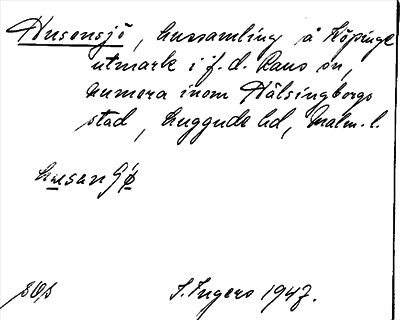 Husensjö, hussamling å Köpinge
utmark i f.d. Raus sn,
numera inom Hälsingborgs
stad, Luggude hd, Malm. l.
S. Ingers 1947.